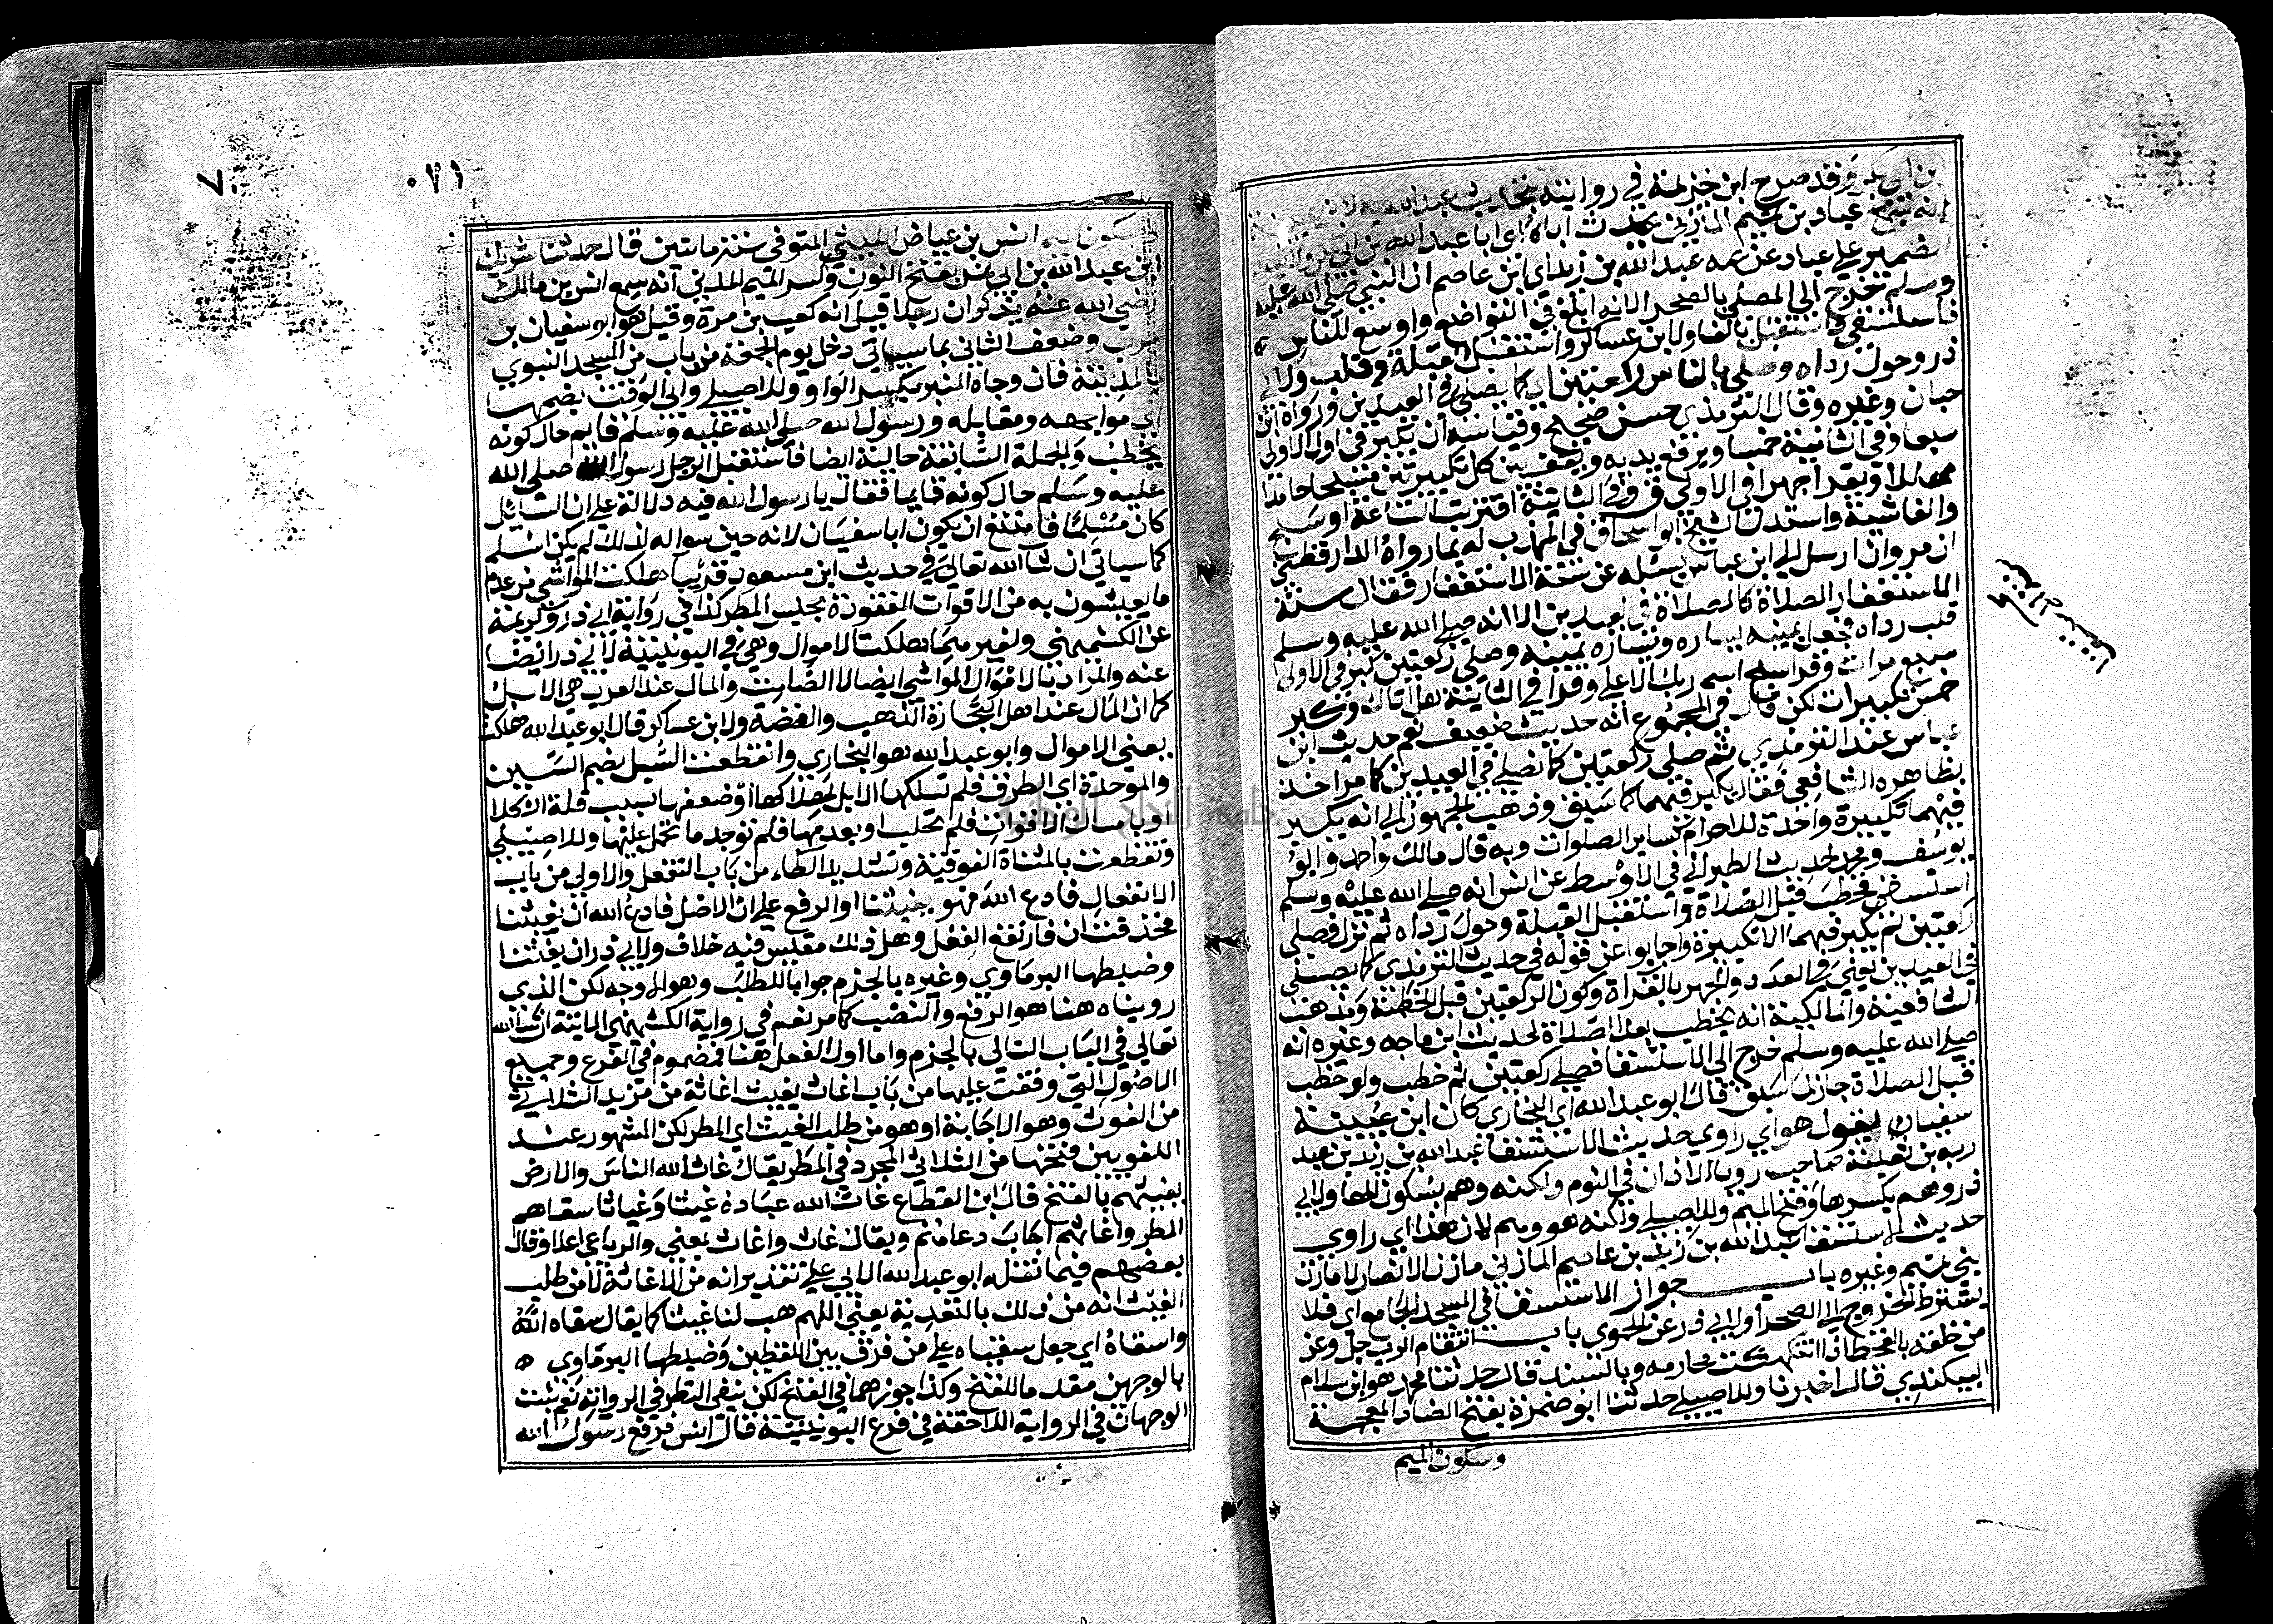 ابن ابي بكر وقد صرح ابن خزيمة في روايته بتحديث عبد الله
انه سمع عباد بن تميم المازني يحدث اباه اي ابا عبد الله بن ابي بكر
الضمير علي عباد عن عمه عبد الله بن زيد اي ابن عاصم ان النبي صلي الله عليه
وسلم خرج الي المصلي بالصحرا لانه ابلغ في التواضع واوسع للناس
فاستسقي فاستقبل بالفا ولابن عساكر واستقبل القبلة وقلب ولابي
ذر وحول رداه وصلي بالناس ركعتين اي كما يصلي في العيدين رواه ابن
حبان وغيره وقال الترمذي حسن صحيح وقياسه ان يكبر في اول الاولي
سبعا وفي الثانية خمسا ويرفع يديه ويقف بين كل تكبيرتين مسبحا حامدا
مهللا ويقرا جهرا في الاولي ق وفي الثانية اقتربت الساعة او سبح
والغاشية واستدل الشيخ ابو اسحاق في المهذب له بما رواه الدارقطني
ان مروان ارسل الي ابن عباس يسئله عن سنة الاستسقا فقال سنة
الاستسقا الصلاة كالصلاة في العيدين الا انه صلي الله عليه وسلم
قلب رداه فجعل يمينه يساره ويساره يمينه وصلي ركعتين كبر في الاولي
سبع مرات وقرا سبح اسم ربك الاعلي وقرا في الثانية هل اتاك وكبر
خمس تكبيرات لكن قال في المجموع انه حديث ضعيف نعم حديث ابن
عباس عند الترمذي ثم صلي ركعتين كما نصلي في العيدين كما مر اخذ
بظاهره الشافعي فقال يكبر فيهما كما سبق وذهب الجمهور الي انه يكبر
فيهما تكبيرة واحدة للاحرام كساير الصلوات وبه قال مالك واحمد وابو
يوسف ومحمد لحديث الطبراني في الاوسط عن انس انه صلي الله عليه وسلم
استسقي فخطب قبل الصلاة واستقبل القبلة وحول رداه ثم نزل فصلي
ركعتين لم يكبر فيهما الا تكبيرة واجابوا عن قوله في حديث الترمذي كما يصلي
في العيدين يعني في العدد والجهر بالقراة وكون الركعتين قبل الخطبة ومذهب
الشافعية والمالكية انه يخطب بعد الصلاة لحديث ابن ماجه وغيره انه
صلي الله عليه وسلم خرج الي الاستسقا فصلي ركعتين ثم خطب ولو خطب
قبل الصلاة جاز كما سبق قال ابو عبد الله اي البخاري كان ابن عيينة
سفيان يقول هو اي راوي حديث الاستسقا عبد الله بن زيد بن عبد
ربه بن ثعلبة صاحب رويا الاذان في النوم ولكنه وهم بسكون الها ولابي
ذر وهم بكسرها وفتح الميم وللاصيلي ولكنه هو وهم لان هذا اي راوي
حديث الاستسقا عبد الله بن زيد بن عاصم المازني مازن الانصار لا مازن
بني تميم وغيره باب جواز الاستسقا في المسجد الجامع اي فلا
يشترط الخروج الي الصحرا ولابي ذر عن الحموي باب انتقام الرب جل وعز
من خلقه بالقحط اذا انتهكت محارمه وبالسند قال حدثنا محمد هو ابن سلام
البيكندي قال اخبرنا وللاصيلي حدثنا ابو ضمرة بفتح الضاد المعجمة
وسكون الميم
٠٢١
وسكون الميم انس بن عياض الليثي المتوفي سنة مايتين قال حدثنا شريك
ابن عبد الله بن ابي نمر بفتح النون وكسر الميم المدني انه سمع انس بن مالك
رضي الله عنه يذكر ان رجلا قيل انه كعب بن مرة وقيل هو ابو سفيان بن
حرب وضعف الثاني بما سياتي دخل يوم الجمعة من باب من المسجد النبوي
بالمدينة كان وجاه المنبر بكسر الواو وللاصيلي وابي الوقت بضمها
اي مواجهه ومقابله ورسول الله صلي الله عليه وسلم قايم حال كونه
يخطب والجملة السابقة حالية ايضا فاستقبل الرجل رسول الله صلي الله
عليه وسلم حال كونه قايما فقال يا رسول الله فيه دلالة علي ان السايل
كان مسلما فامتنع ان يكون ابا سفيان لانه حين سواله لذلك لم يكن اسلم
كما سياتي ان شا الله تعالي في حديث ابن مسعود قريبا هلكت المواشي من عدم
ما يعيشون به من الاقوات المفقودة بحبس المطر كذا في رواية ابي ذر وكريمة
عن الكشميهني ولغيرهما هلكت الاموال وهي في اليونينية لابي ذر ايضا
عنه والمراد بالاموال المواشي ايضا لا الصامت والمال عند العرب هي الابل
كما ان المال عند اهل التجارة الذهب والفضة ولابن عساكر قال ابو عبد الله هلكت
يعني الاموال وابو عبد الله هو البخاري وانقطعت السبل بضم السين
والموحدة اي الطرق فلم تسلكها الابل لهلاكها او ضعفها بسبب قلة الكلا
او بامساك الاقوات فلم تجلب او بعدمها فلم يوجد ما يحمل عليها وللاصيلي
وتقطعت بالمثناة الفوقية وتشديد الطاء من باب التفعل والاولي من باب
الانفعال فادع الله فهو يغيثنا او الرفع علي ان الاصل فادع الله ان يغيثنا
فحذفت ان فارتفع الفعل وهل ذلك مقيس فيه خلاف ولابي ذر ان يغيثنا
وضبطها البرماوي وغيره بالجزم جوابا للطلب وهو الاوجه لكن الذي
رويناه هنا هو الرفع والنصب كما مر نعم في رواية الكشميهني الاتية ان شا الله
تعالي في الباب التالي بالجزم واما اول الفعل هنا فمضموم في الفرع وجميع
الاصول التي وقفت عليها من باب اغاث يغيث اغاثة من مزيد الثلاثي
من الغوث وهو الاجابة او هو من طلب الغيث اي المطر لكن المشهور عند
اللغويين فتحها من الثلاثي المجرد في المطر يقال غاث الله الناس والارض
يغيثهم بالفتح قال ابن القطاع غاث الله عباده غيثا وغياثا سقاهم
المطر واغاثهم اجاب دعاهم ويقال غاث واغاث بمعني والرباعي اعلا وقال
بعضهم فيما نقله ابو عبد الله الابي علي تقدير انه من الاغاثة لا من طلب
الغيث انه من ذلك بالتعدية يعني اللهم هب لنا غيثا كما يقال سقاه الله
واسقاه اي جعل سقياه علي من فرق بين اللفظين وضبطها البرماوي
بالوجهين مقدما للفتح وكذا جوزهما في الفتح لكن يبقي النظر في الرواية نعم ثبتت
الوجهان في الرواية اللاحقة في فرع اليونينية قال انس فرفع رسول الله